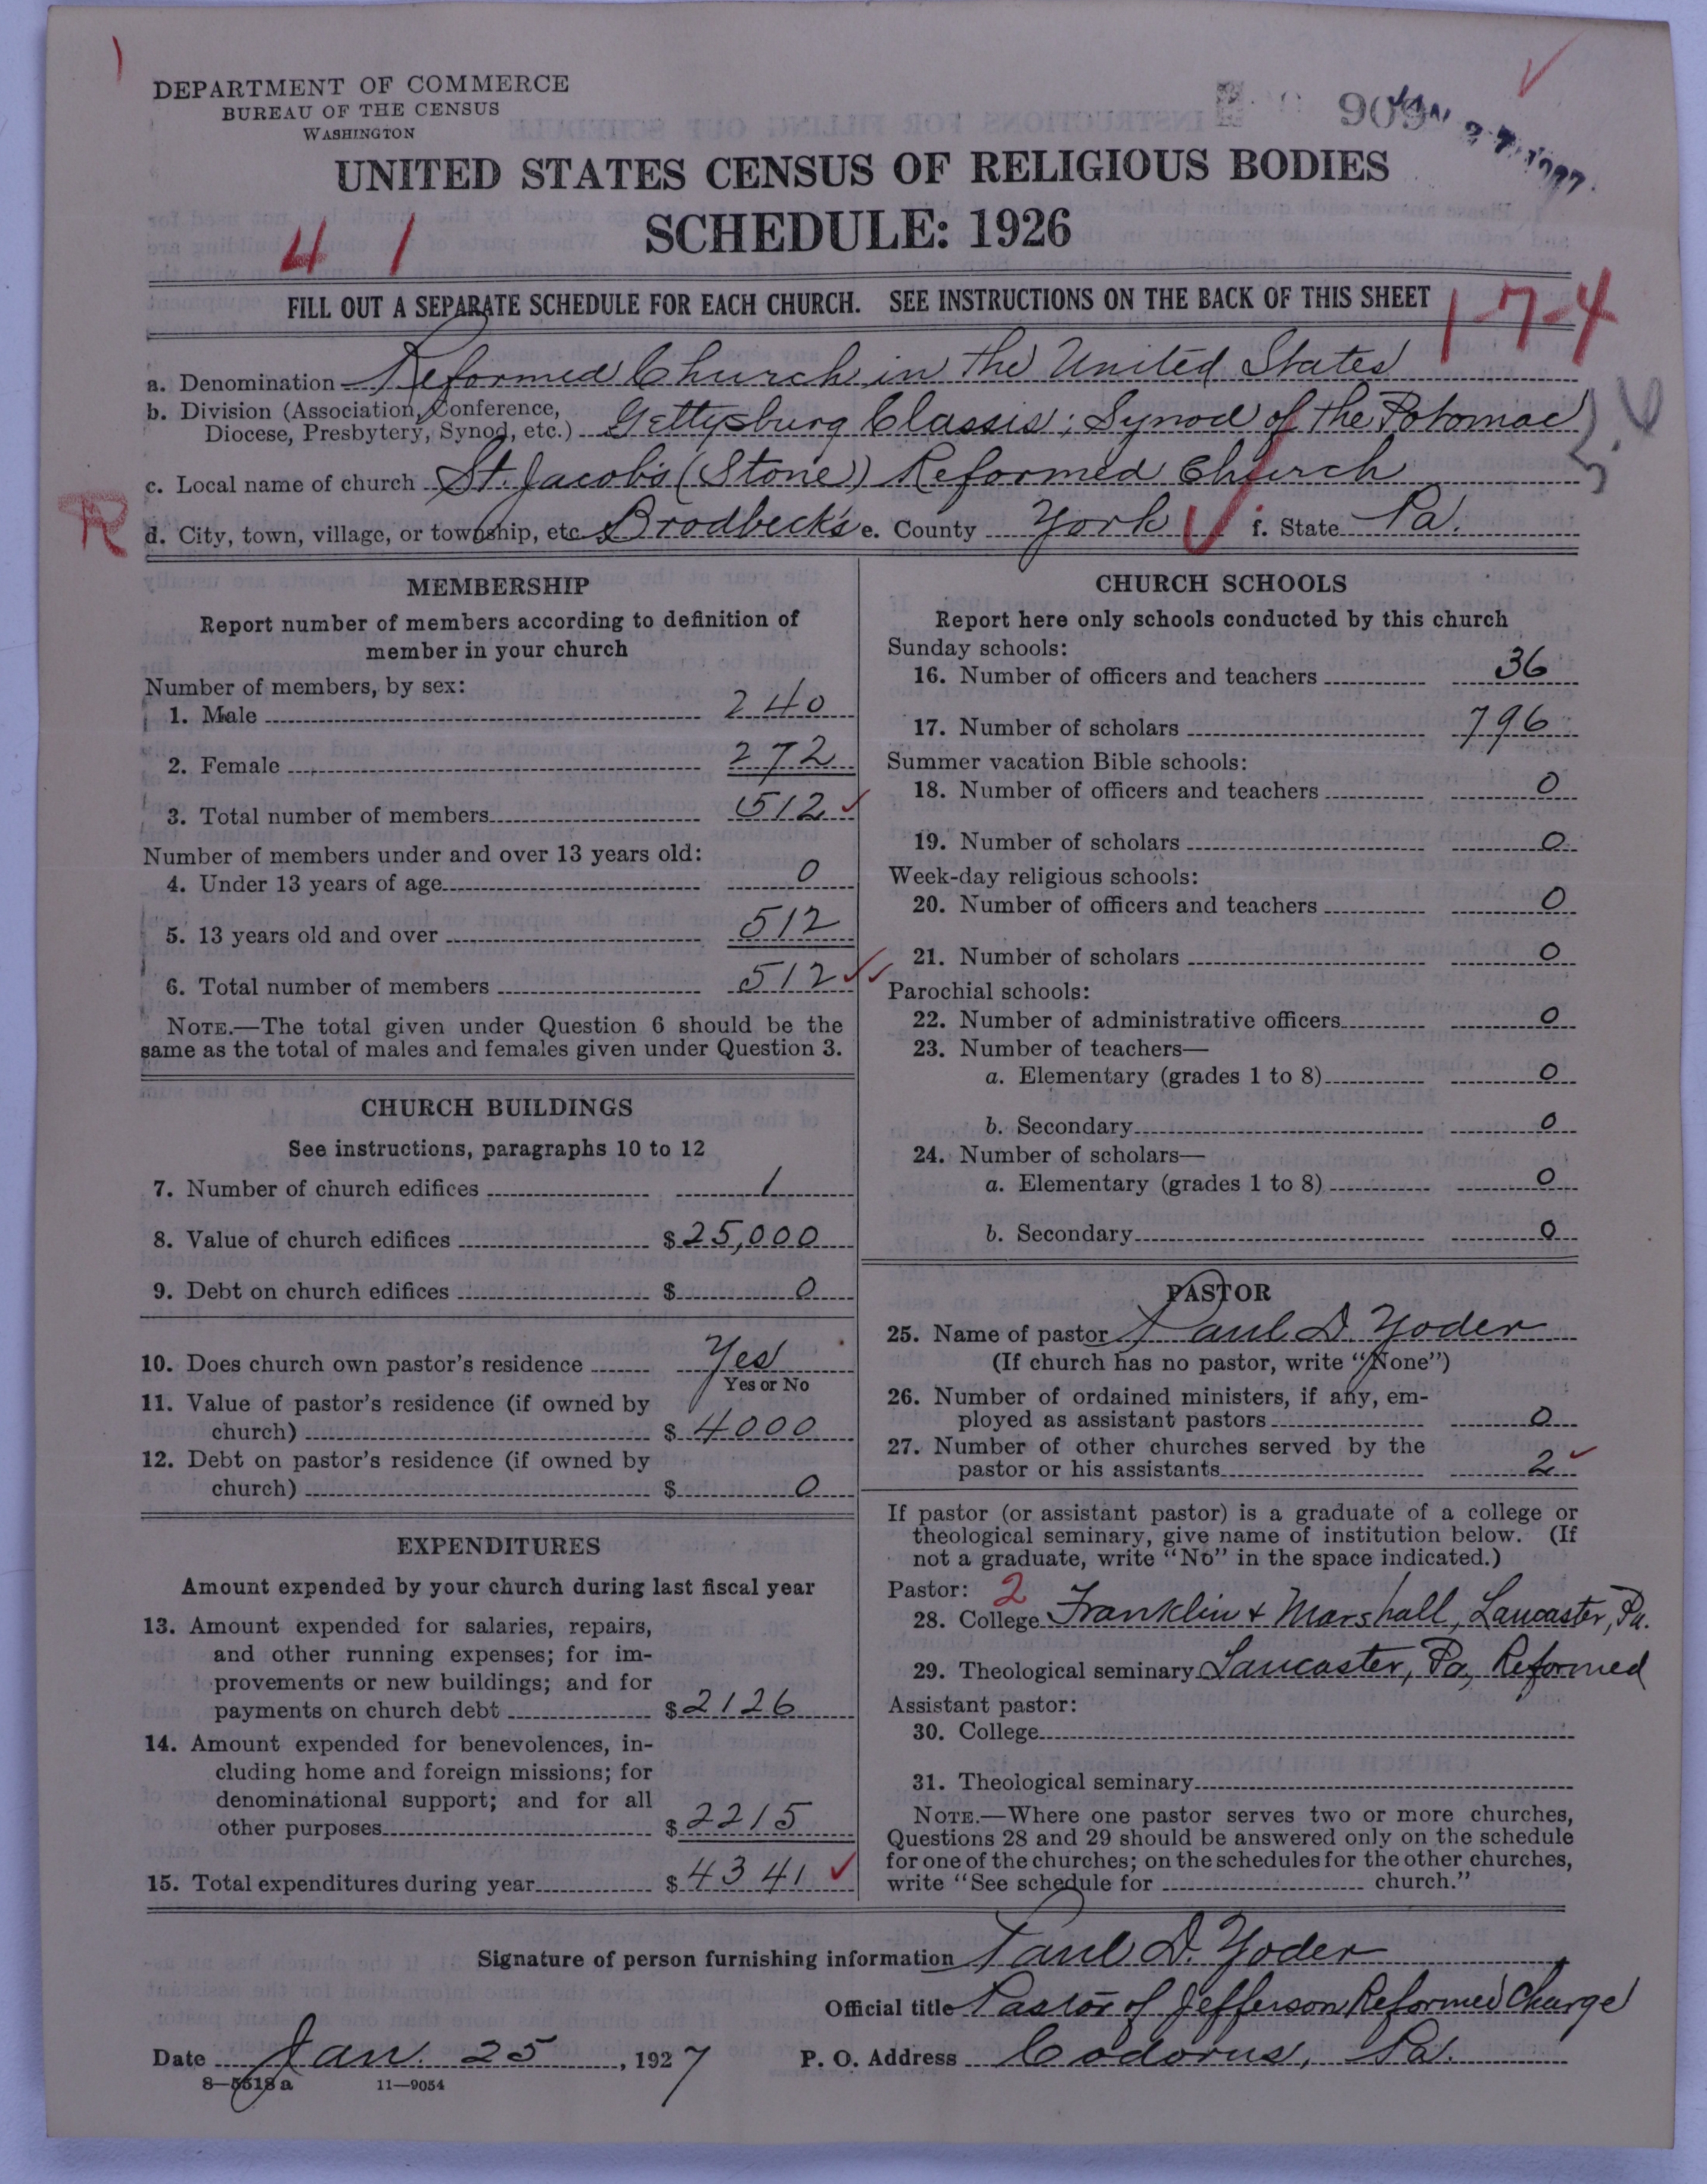 DEPARTMENT OF COMMERCE
BUREAU OF THE CENSUS
WASHINGTON
909
JAN 27 1927
UNITED STATES CENSUS OF RELIGIOUS BODIES
SCHEDULE: 1926
4 1
FILL OUT A SEPARATE SCHEDULE FOR EACH CHURCH. SEE INSTRUCTIONS ON THE BACK OF THIS SHEET
1-7-4
a. Denomination Reformed Church in the United States
b. Division (Association, Conference, Diocese, Presbytery, Synod, etc.) Gettysburg Classis; Synod of the Potomac
c. Local name of church St. Jacob's (Stone) Reformed Church
R
d. City, town, village, or township, etc. Brodbeck's e. County York f. State Pa.
MEMBERSHIP
Report number of members according to definition of
member in your church
Number of members, by sex:
1. Male 240
2. Female 272
3. Total number of members 512
Number of members under and over 13 years old:
4. Under 13 years of age 0
5. 13 years old and over 512
6. Total number of members 512
NOTE.—The total given under Question 6 should be the
same as the total of males and females given under Question 3.
CHURCH BUILDINGS
See instructions, paragraphs 10 to 12
7. Number of church edifices 1
8. Value of church edifices $25,000
9. Debt on church edifices $ 0
10. Does church own pastor's residence Yes
Yes or No
11. Value of pastor's residence (if owned by
church) $ 4000
12. Debt on pastor's residence (if owned by
church) $ 0
EXPENDITURES
Amount expended by your church during last fiscal year
13. Amount expended for salaries, repairs,
and other running expenses; for im-
provements or new buildings; and for
payments on church debt $2126
14. Amount expended for benevolences, in-
cluding home and foreign missions; for
denominational support; and for all
other purposes $2215
15. Total expenditures during year $4341
CHURCH SCHOOLS
Report here only schools conducted by this church
Sunday schools:
16. Number of officers and teachers 36
17. Number of scholars 796
Summer vacation Bible schools:
18. Number of officers and teachers 0
19. Number of scholars 0
Week-day religious schools:
20. Number of officers and teachers 0
21. Number of scholars 0
Parochial schools:
22. Number of administrative officers 0
23. Number of teachers—
a. Elementary (grades 1 to 8) 0
b. Secondary 0
24. Number of scholars—
a. Elementary (grades 1 to 8) 0
b. Secondary 0
PASTOR
25. Name of pastor Paul D. Yoder
(If church has no pastor, write "None")
26. Number of ordained ministers, if any, em-
ployed as assistant pastors 0
27. Number of other churches served by the
pastor or his assistants 2
If pastor (or assistant pastor) is a graduate of a college or
theological seminary, give name of institution below. (If
not a graduate, write "No" in the space indicated.)
Pastor: 2
28. College Franklin & Marshall, Lancaster, Pa.
29. Theological seminary Lancaster, Pa, Reformed
Assistant pastor:
30. College
31. Theological seminary
NOTE.—Where one pastor serves two or more churches,
Questions 28 and 29 should be answered only on the schedule
for one of the churches; on the schedules for the other churches,
write "See schedule for church."
Signature of person furnishing information Paul D. Yoder
Official title Pastor of Jefferson Reformed Charge
Date Jan. 25, 1927 P. O. Address Codorus, Pa.
8—5518 a 11—9054